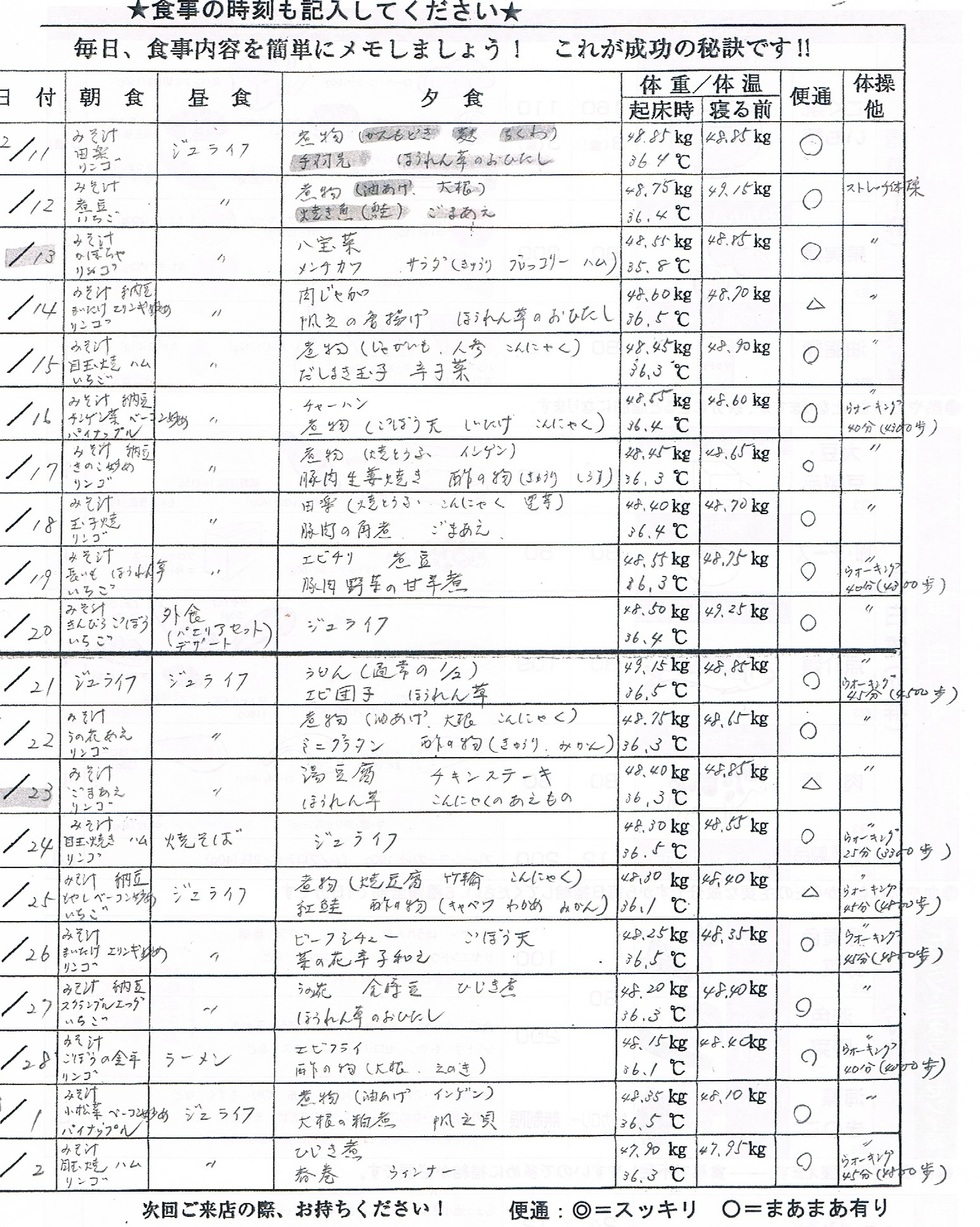 ★食事の時刻も記入してください★
毎日、食事内容を簡単にメモしましょう！ これが成功の秘訣です!!
日 付 朝 食 昼 食 夕 食 体 重／体 温 便通 体操
起床時 寝る前 他
2/11 みそ汁 田楽 リンゴ ジュライフ 煮物 (がんもどき 麩 ちくわ) 48.85kg 48.85kg ○
ほうれん草のおひたし 36.4℃
/12 みそ汁 煮豆 いちご 〃 煮物 (油あげ、大根) 48.75kg 49.15kg ○ ストレッチ体操
焼き魚 (鮭) ごまあえ 36.4℃
/13 みそ汁 かぼちゃ リンゴ 〃 八宝菜 48.55kg 48.85kg ○ 〃
メンチカツ サラダ (きゅうり ブロッコリー ハム) 35.8℃
/14 みそ汁 納豆 まいたけ エリンギ炒め リンゴ 〃 肉じゃが 48.60kg 48.70kg △ 〃
帆立の唐揚げ ほうれん草のおひたし 36.5℃
/15 みそ汁 目玉焼 ハム いちご 〃 煮物 (じゃがいも、人参 こんにゃく) 48.45kg 48.90kg ○ 〃
だしまき玉子 辛子菜 36.3℃
/16 みそ汁 納豆 チンゲン菜 ベーコン炒め パイナップル 〃 チャーハン 48.55kg 48.60kg ○ 〃
煮物 (ごぼう天 しいたけ こんにゃく) 36.4℃ ウォーキング 40分 (4300歩)
/17 みそ汁 納豆 きのこ炒め リンゴ 〃 煮物 (焼とうふ インゲン) 48.45kg 48.65kg ○ 〃
豚肉生姜焼き 酢の物 (きゅうり しらす) 36.3℃
/18 みそ汁 玉子焼 リンゴ 〃 田楽 (焼とうふ こんにゃく 里芋) 48.40kg 48.70kg ○ 〃
豚肉の角煮 ごまあえ 36.4℃
/19 みそ汁 長いも ほうれん草 いちご 〃 エビチリ 煮豆 48.55kg 48.75kg ○ 〃
豚肉野菜の甘辛煮 36.3℃ ウォーキング 40分 (4300歩)
/20 みそ汁 きんぴらごぼう いちご 外食 (パエリアセット) デザート ジュライフ 48.50kg 49.25kg ○ 〃
36.4℃
/21 ジュライフ ジュライフ うどん (通常の1/2) 49.15kg 48.85kg ○ 〃
エビ団子 ほうれん草 36.5℃ ウォーキング 45分 (4500歩)
/22 みそ汁 うの花あえ リンゴ 〃 煮物 (油あげ、大根 こんにゃく) 48.75kg 48.65kg ○ 〃
ミニグラタン 酢の物 (きゅうり、みかん) 36.3℃
/23 みそ汁 ごまあえ リンゴ 〃 湯豆腐 チキンステーキ 48.40kg 48.85kg △ 〃
ほうれん草 こんにゃくのあえもの 36.3℃
/24 みそ汁 目玉焼き ハム リンゴ 焼そば ジュライフ 48.30kg 48.55kg ○ 〃
36.5℃ ウォーキング 25分 (3300歩)
/25 みそ汁 納豆 もやしベーコン炒め いちご ジュライフ 煮物 (焼豆腐 竹輪 こんにゃく) 48.30kg 48.40kg △ 〃
紅鮭 酢の物 (キャベツ わかめ みかん) 36.1℃ ウォーキング 45分 (4800歩)
/26 みそ汁 まいたけ エリンギ炒め リンゴ 〃 ビーフシチュー ごぼう天 48.25kg 48.35kg ○ 〃
菜の花辛子和え 36.5℃ ウォーキング 45分 (4800歩)
/27 みそ汁 納豆 スクランブルエッグ いちご 〃 うの花 金時豆 ひじき煮 48.20kg 48.40kg ○ 〃
ほうれん草のおひたし 36.3℃
/28 みそ汁 ごぼうの金平 リンゴ ラーメン エビフライ 48.15kg 48.40kg ○ 〃
酢の物 (大根、えのき) 36.1℃ ウォーキング 40分 (4000歩)
/1 みそ汁 小松菜 ベーコン炒め パイナップル ジュライフ 煮物 (油あげ インゲン) 48.35kg 48.10kg ○
大根の粕煮 帆立貝 36.5℃
/2 みそ汁 目玉焼 ハム 〃 ひじき煮 47.90kg 47.95kg ○ 〃
春巻 ウィンナー 36.3℃ ウォーキング 45分 (4800歩)
次回ご来店の際、お持ちください！ 便通：◎＝スッキリ ○＝まあまあ有り